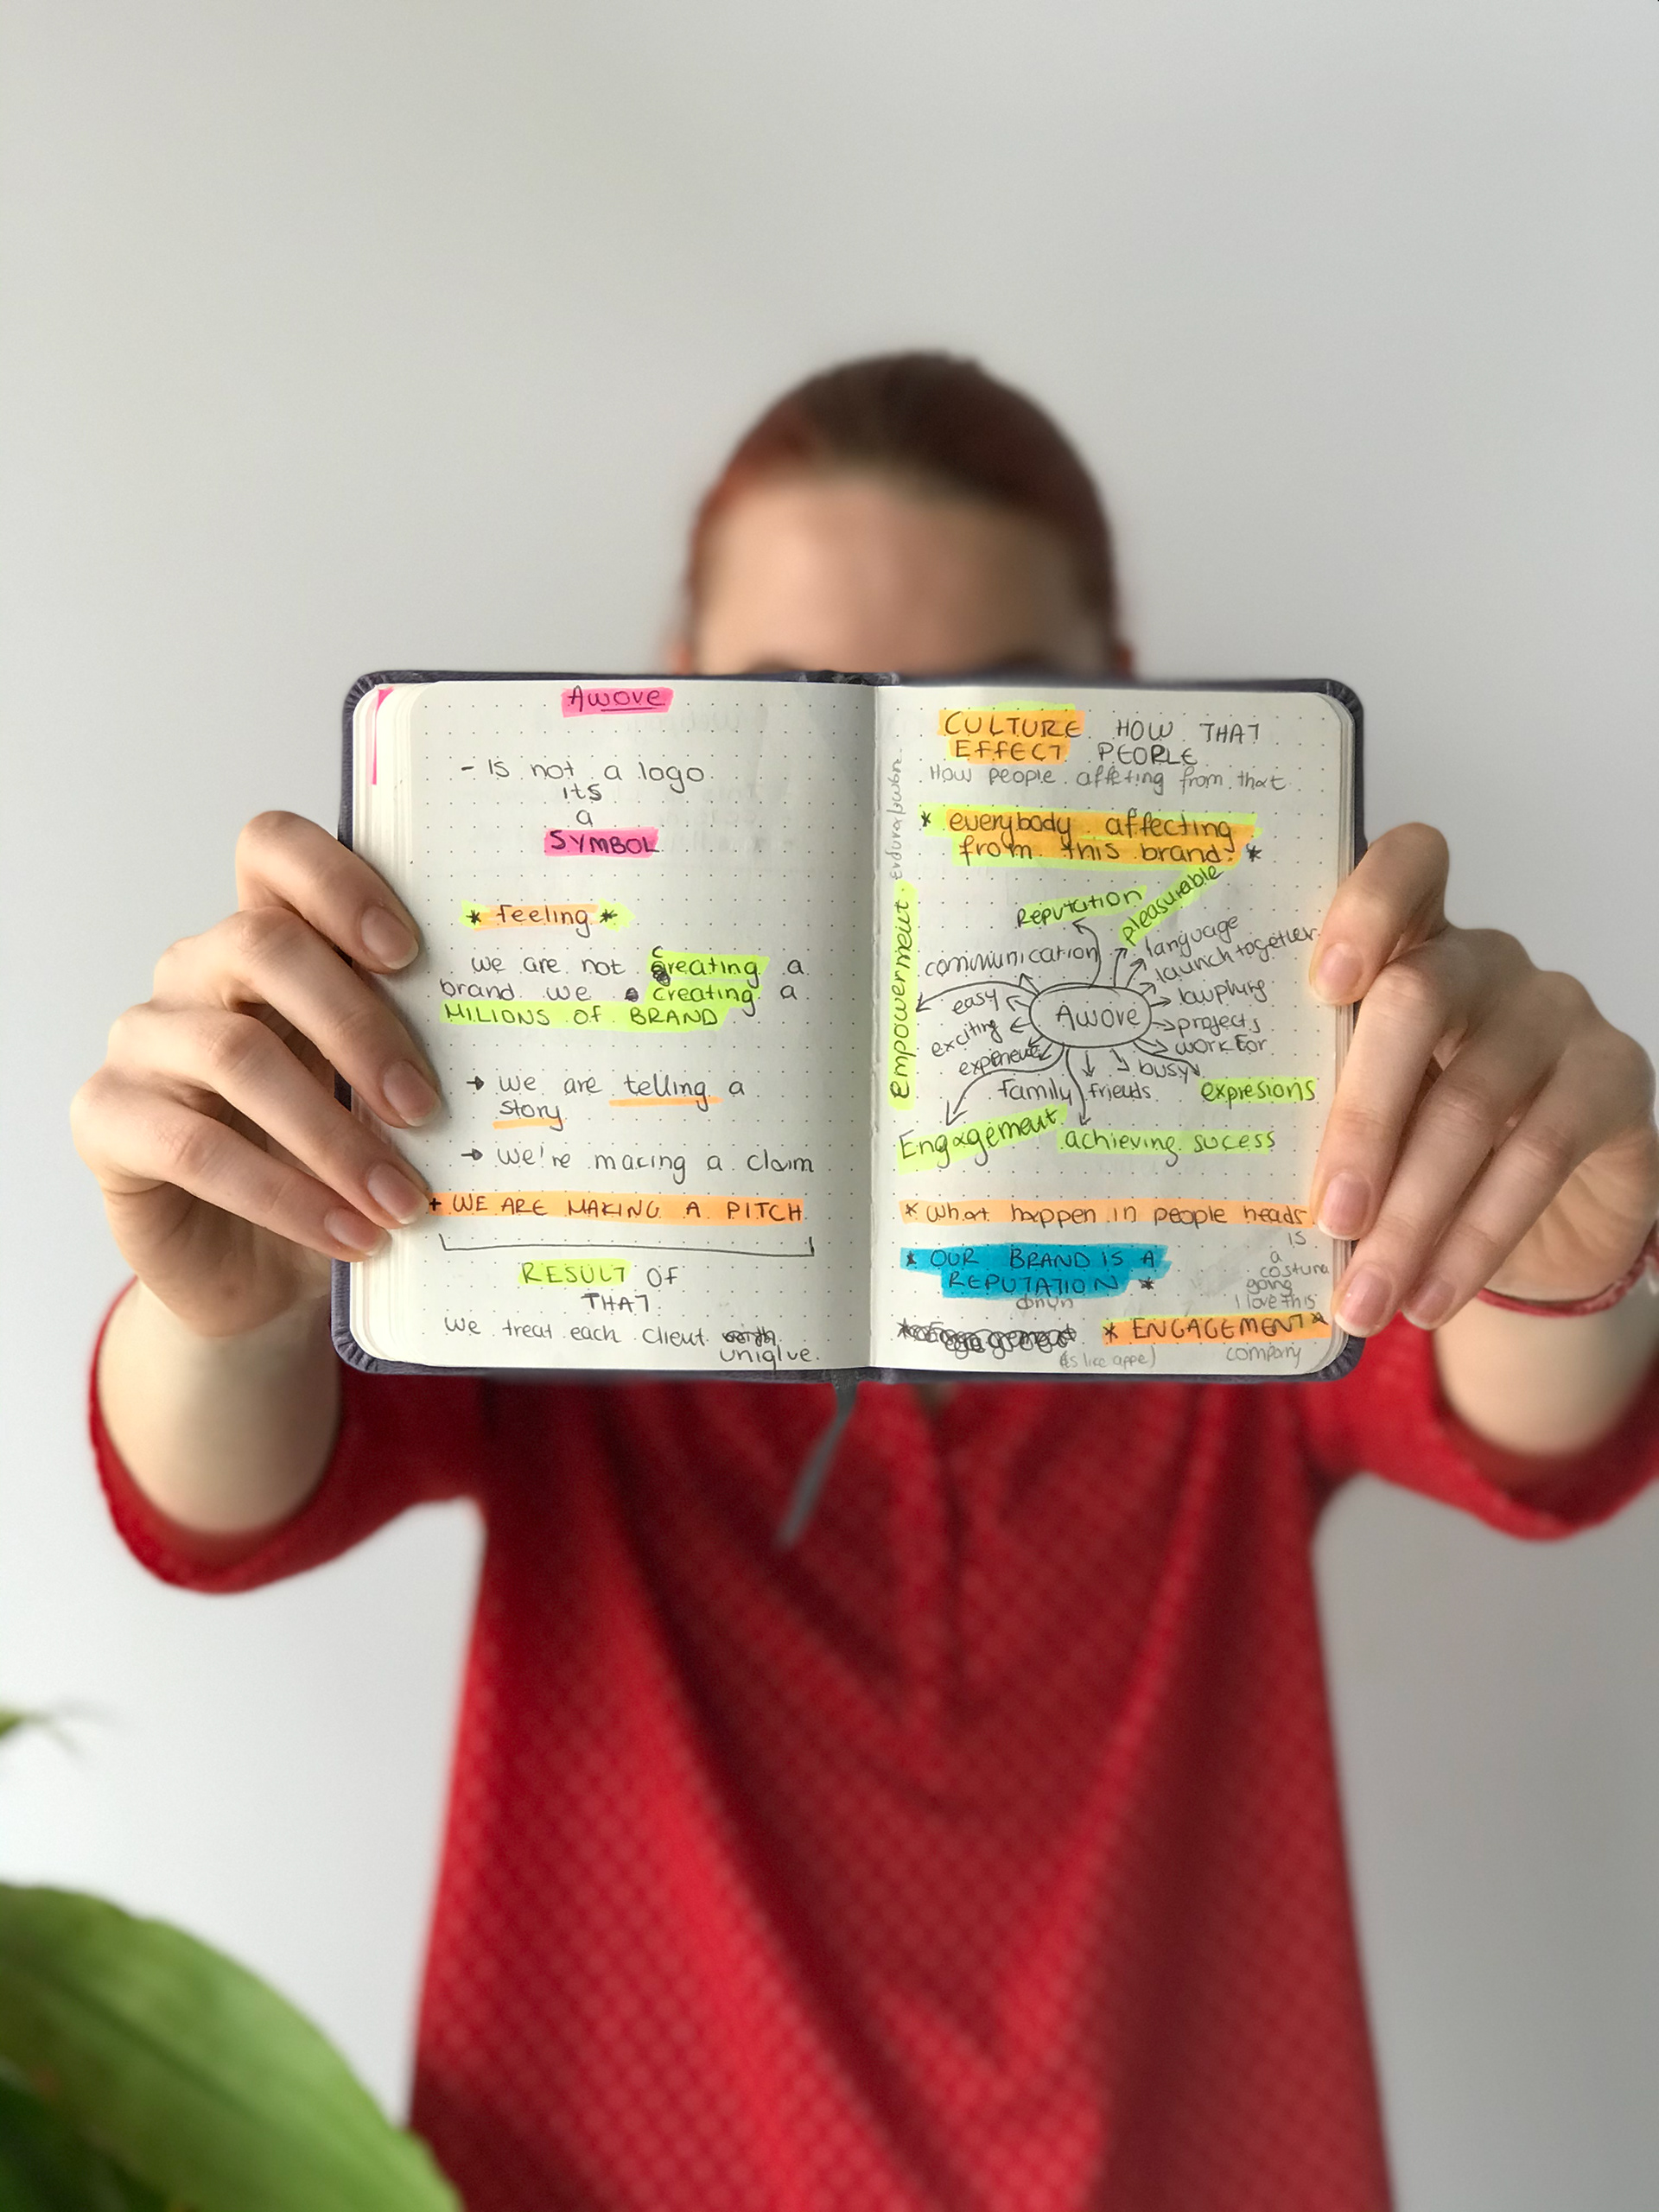 Awove
- Is not a logo
its
a
SYMBOL
* feeling *
we are not creating a
brand we creating a
MILIONS Of BRAND
→ we are telling a
story
→ we're making a claim
+ WE ARE MAKING A PITCH
RESULT OF
THAT
we treat each client
uniqlve.
CULTURE HOW THAT
EFFECT PEOPLE
How people affeting from that
* everybody affecting
from this brand. *
Empowerment
Reputation
pleasurable
communication
language
launch together
easy
exciting
Awove
projects
work for
busy
family friends
expresions
Engagement
achieving sucess
* what happen in people heads
is
a
going
I love this
* OUR BRAND IS A
REPUTATION *
* ENGAGEMENT *
company